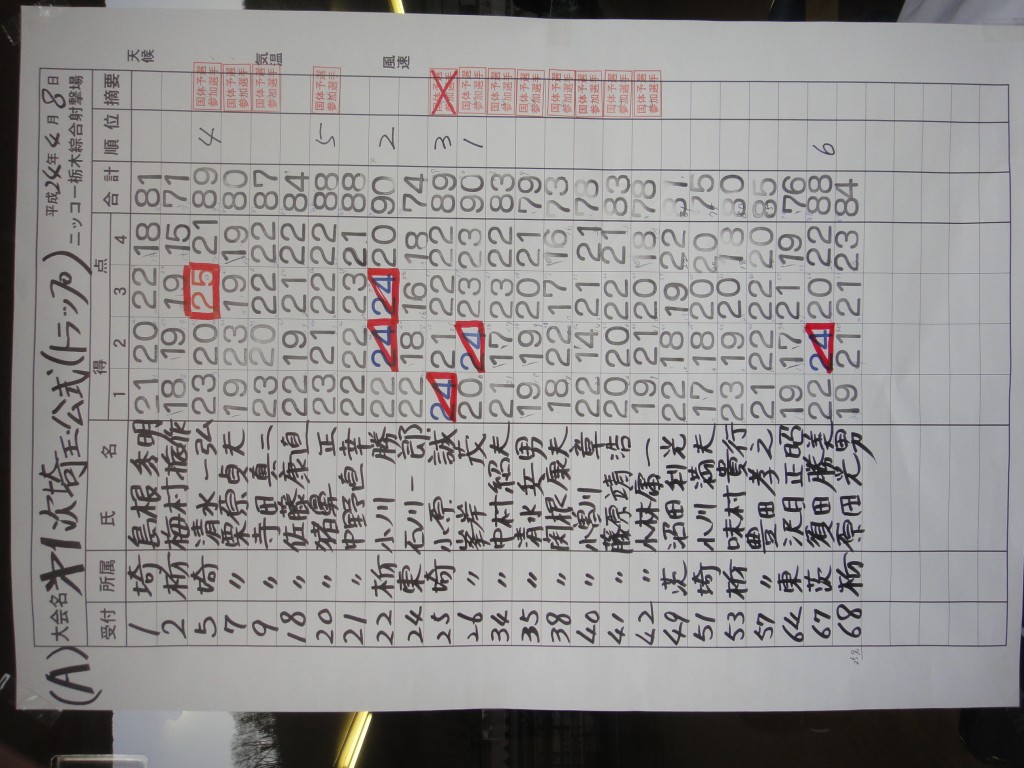 (A) 大会名 オ1次埼玉公式(トラップ) 平成24年4月8日
ニッコー栃木綜合射撃場
天候
気温
風速
受付 所属 氏名 得点 1 2 3 4 合計 順位 摘要
1 埼 島根秀明 21 20 22 18 81
2 栃 梅村振作 18 19 19 15 71
5 埼 清水一弘 23 20 25 21 89 4 国体予選参加選手
7 〃 栗原貞夫 19 23 19 19 80 国体予選参加選手
9 〃 寺田真二 23 20 22 22 87 国体予選参加選手
18 〃 佐藤康直 22 19 21 22 84
20 〃 猪鼻正 23 21 22 22 88 5 国体予選参加選手
21 〃 中野直幸 22 22 23 21 88
22 栃 小川勝 22 24 24 20 90 2
24 東 石川一郎 22 18 16 18 74
25 埼 小原誠 24 21 22 22 89 3
26 〃 峯岸茂 20 24 23 23 90 1 国体予選参加選手
34 〃 中村紹夫 21 17 23 22 83 国体予選参加選手
35 〃 清水安男 19 19 20 21 79 国体予選参加選手
38 〃 関根康夫 18 22 17 16 73 国体予選参加選手
40 〃 小割章 22 14 21 21 78 国体予選参加選手
41 〃 藤原靖浩 20 20 22 21 83 国体予選参加選手
42 〃 小林庸一 19 21 20 18 78 国体予選参加選手
49 茨 沼田利光 22 18 19 22
51 埼 小川満夫 17 18 20 20 75
53 栃 味村貴行 23 19 20 18 80
57 〃 豊田孝之 21 22 22 20 85
64 東 沢目正昭 19 17 21 19 76
67 茨 須田勝美 22 24 20 22 88 6
68 栃 原田光男 19 21 21 23 84